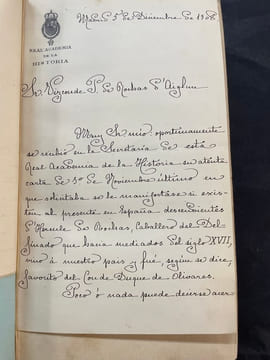 Madrid 5 de Diciembre de 1908
REAL ACADEMIA
DE LA
HISTORIA
Sr. Vizconde P. de Rochas d'Aiglun
Muy Sr. mio: oportunamente
se recibió en la Secretaría de esta
Real Academia de la Historia su atenta
carta de 5 de Noviembre último en
que solicitaba se le manifestase si exis-
ten al presente en España descendientes
d'Hercule de Rochas, Caballero del Del-
finado que hacia mediados del siglo XVII,
vino á nuestro pais y fué, según se dice,
favorito del Conde Duque de Olivares.
Poco ó nada puede decirse acer-